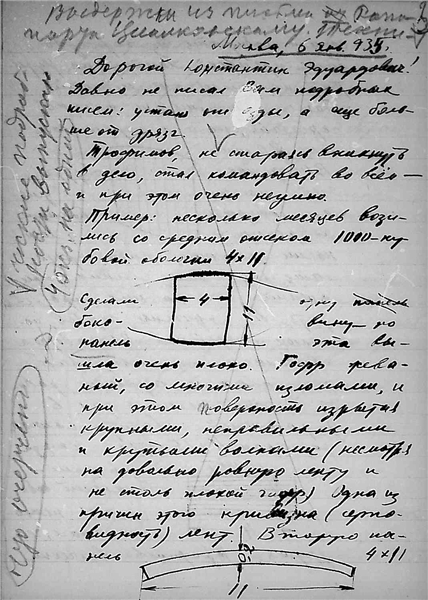 Выдержки из письма Рапо-
порта Циолковскому.
Москва, 6 янв. 935.
Дорогой Константин Эдуардович!
Давно не писал Вам подробных
писем: устаю от езды, а еще боль-
ше от дрязг.
Трофимов, не стараясь вникнуть
в дело, стал командовать во всём –
и при этом очень неумно.
Пример: несколько месяцев вози-
лись со средним отсеком 1000-ку-
бовой оболочки 4×11.
4
11
Сделали одну панель
боко- вину – но
панель эта вы-
шла очень плохо. Гофр рва-
ный, со многими изломами, и
при этом поверхность изрыта
крупными, неправильными
и крутыми волнами (несмотря
на довольно ровную ленту и
не столь плохой гофр). Одна из
причин этого кривизна (серпо-
видность) лент. Вторую па-
нель 4×11
11